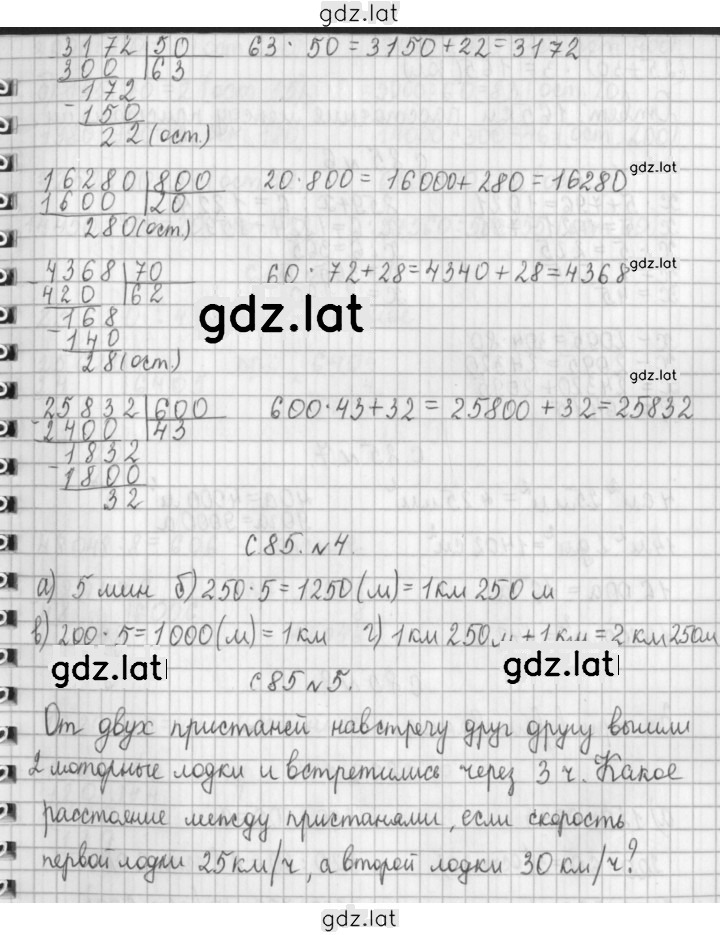 gdz.lat
3172 | 50 63 · 50 = 3150 + 22 = 3172
300 | 63
172
-150
22 (ост.)
gdz.lat
16280 | 800 20 · 800 = 16000 + 280 = 16280
1600 | 20
280 (ост)
gdz.lat
4368 | 70 60 · 72 + 28 = 4340 + 28 = 4368
420 | 62
gdz.lat
168
-140
28 (ост.)
gdz.lat
25832 | 600 600 · 43 + 32 = 25800 + 32 = 25832
-2400 | 43
1832
-1800
32
С 85. №4.
а) 5 мин б) 250 · 5 = 1250 (м) = 1 км 250 м
в) 200 · 5 = 1000 (м) = 1 км г) 1 км 250 м + 1 км = 2 км 250 м
gdz.lat gdz.lat
С 85 №5.
От двух пристаней навстречу друг другу вышли
2 моторные лодки и встретились через 3 ч. Какое
расстояние между пристанями, если скорость
первой лодки 25 км/ч, а второй лодки 30 км/ч?
gdz.lat